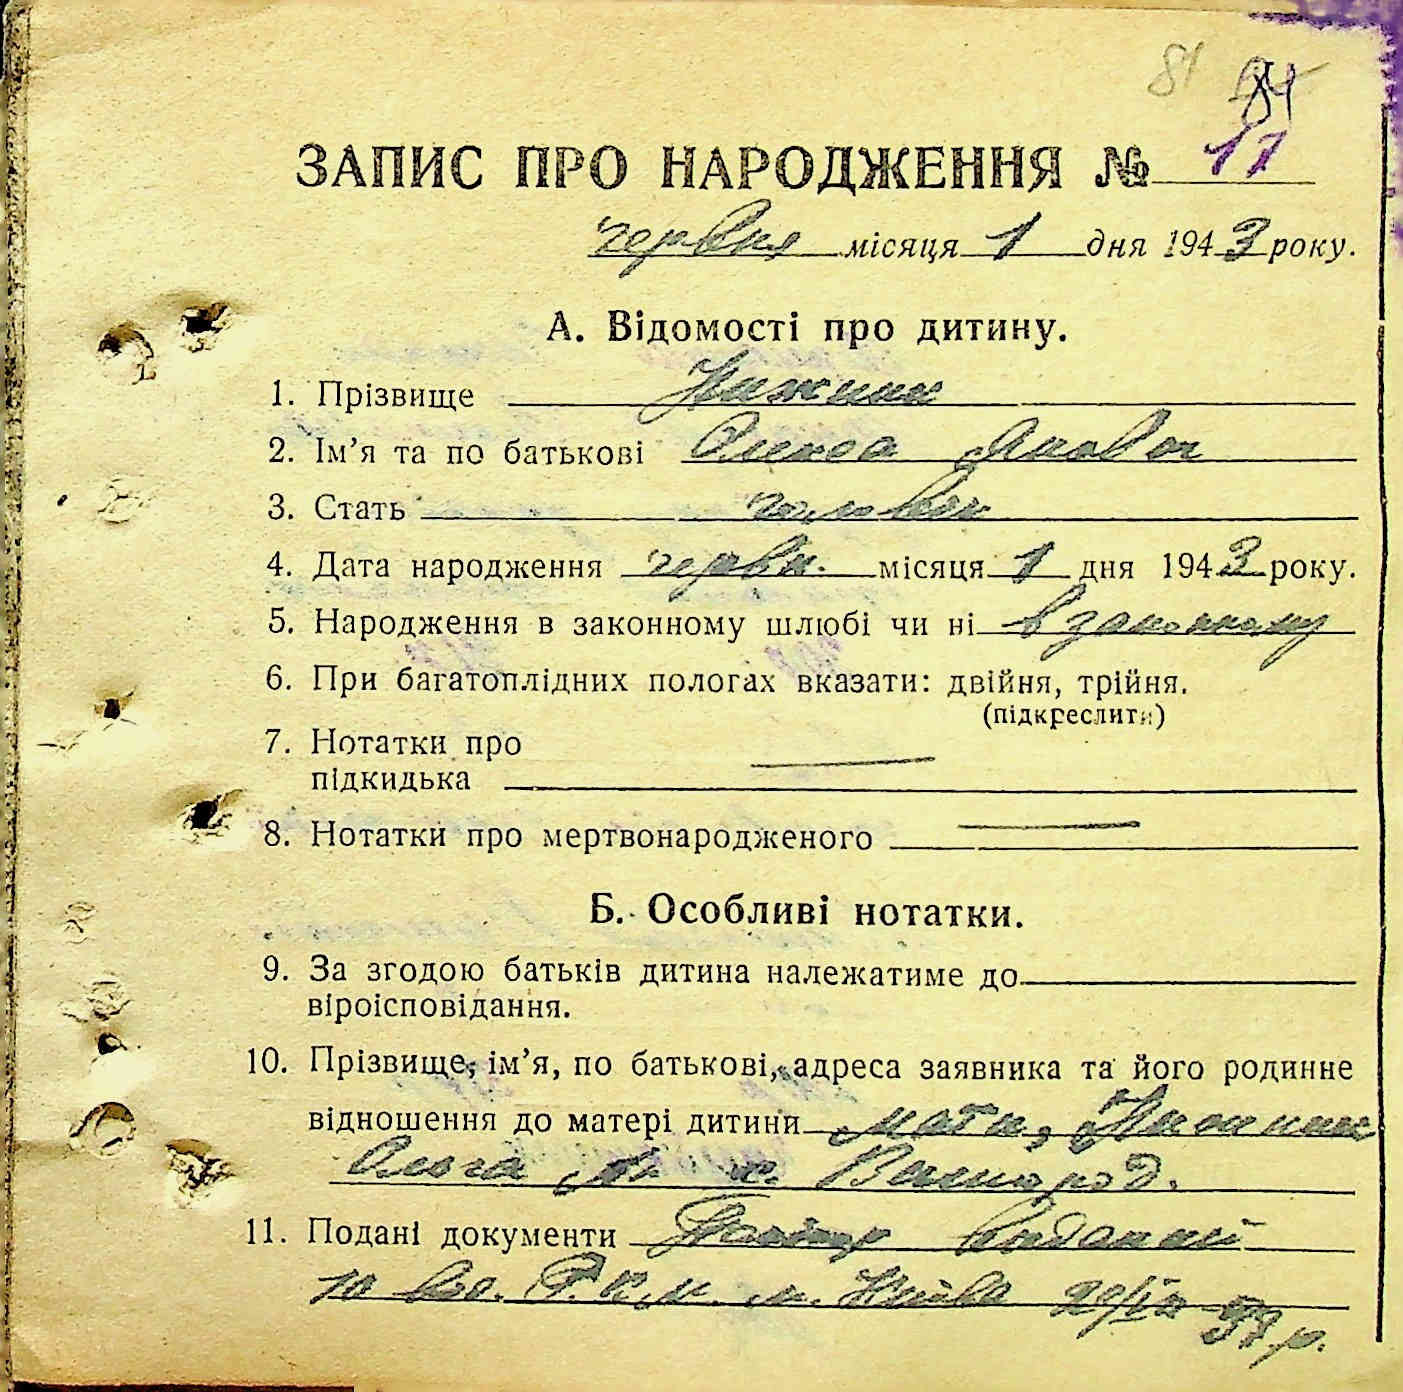 81 84
ЗАПИС ПРО НАРОДЖЕННЯ № 17
червня місяця 1 дня 1943 року.
А. Відомості про дитину.
1. Прізвище Нижник
2. Ім’я та по батькові Олекса
3. Стать чоловік
4. Дата народження червн. місяця 1 дня 1943 року.
5. Народження в законному шлюбі чи ні в законному
6. При багатоплідних пологах вказати: двійня, трійня.
(підкреслити)
7. Нотатки про
підкидька —
8. Нотатки про мертвонародженого —
Б. Особливі нотатки.
9. За згодою батьків дитина належатиме до
віроісповідання.
10. Прізвище, ім’я, по батькові, адреса заявника та його родинне
відношення до матері дитини мати, Нижник
Ольга с. Вишгород.
11. Подані документи Паспорт виданий
10 від. Р.К.М. м. Київа